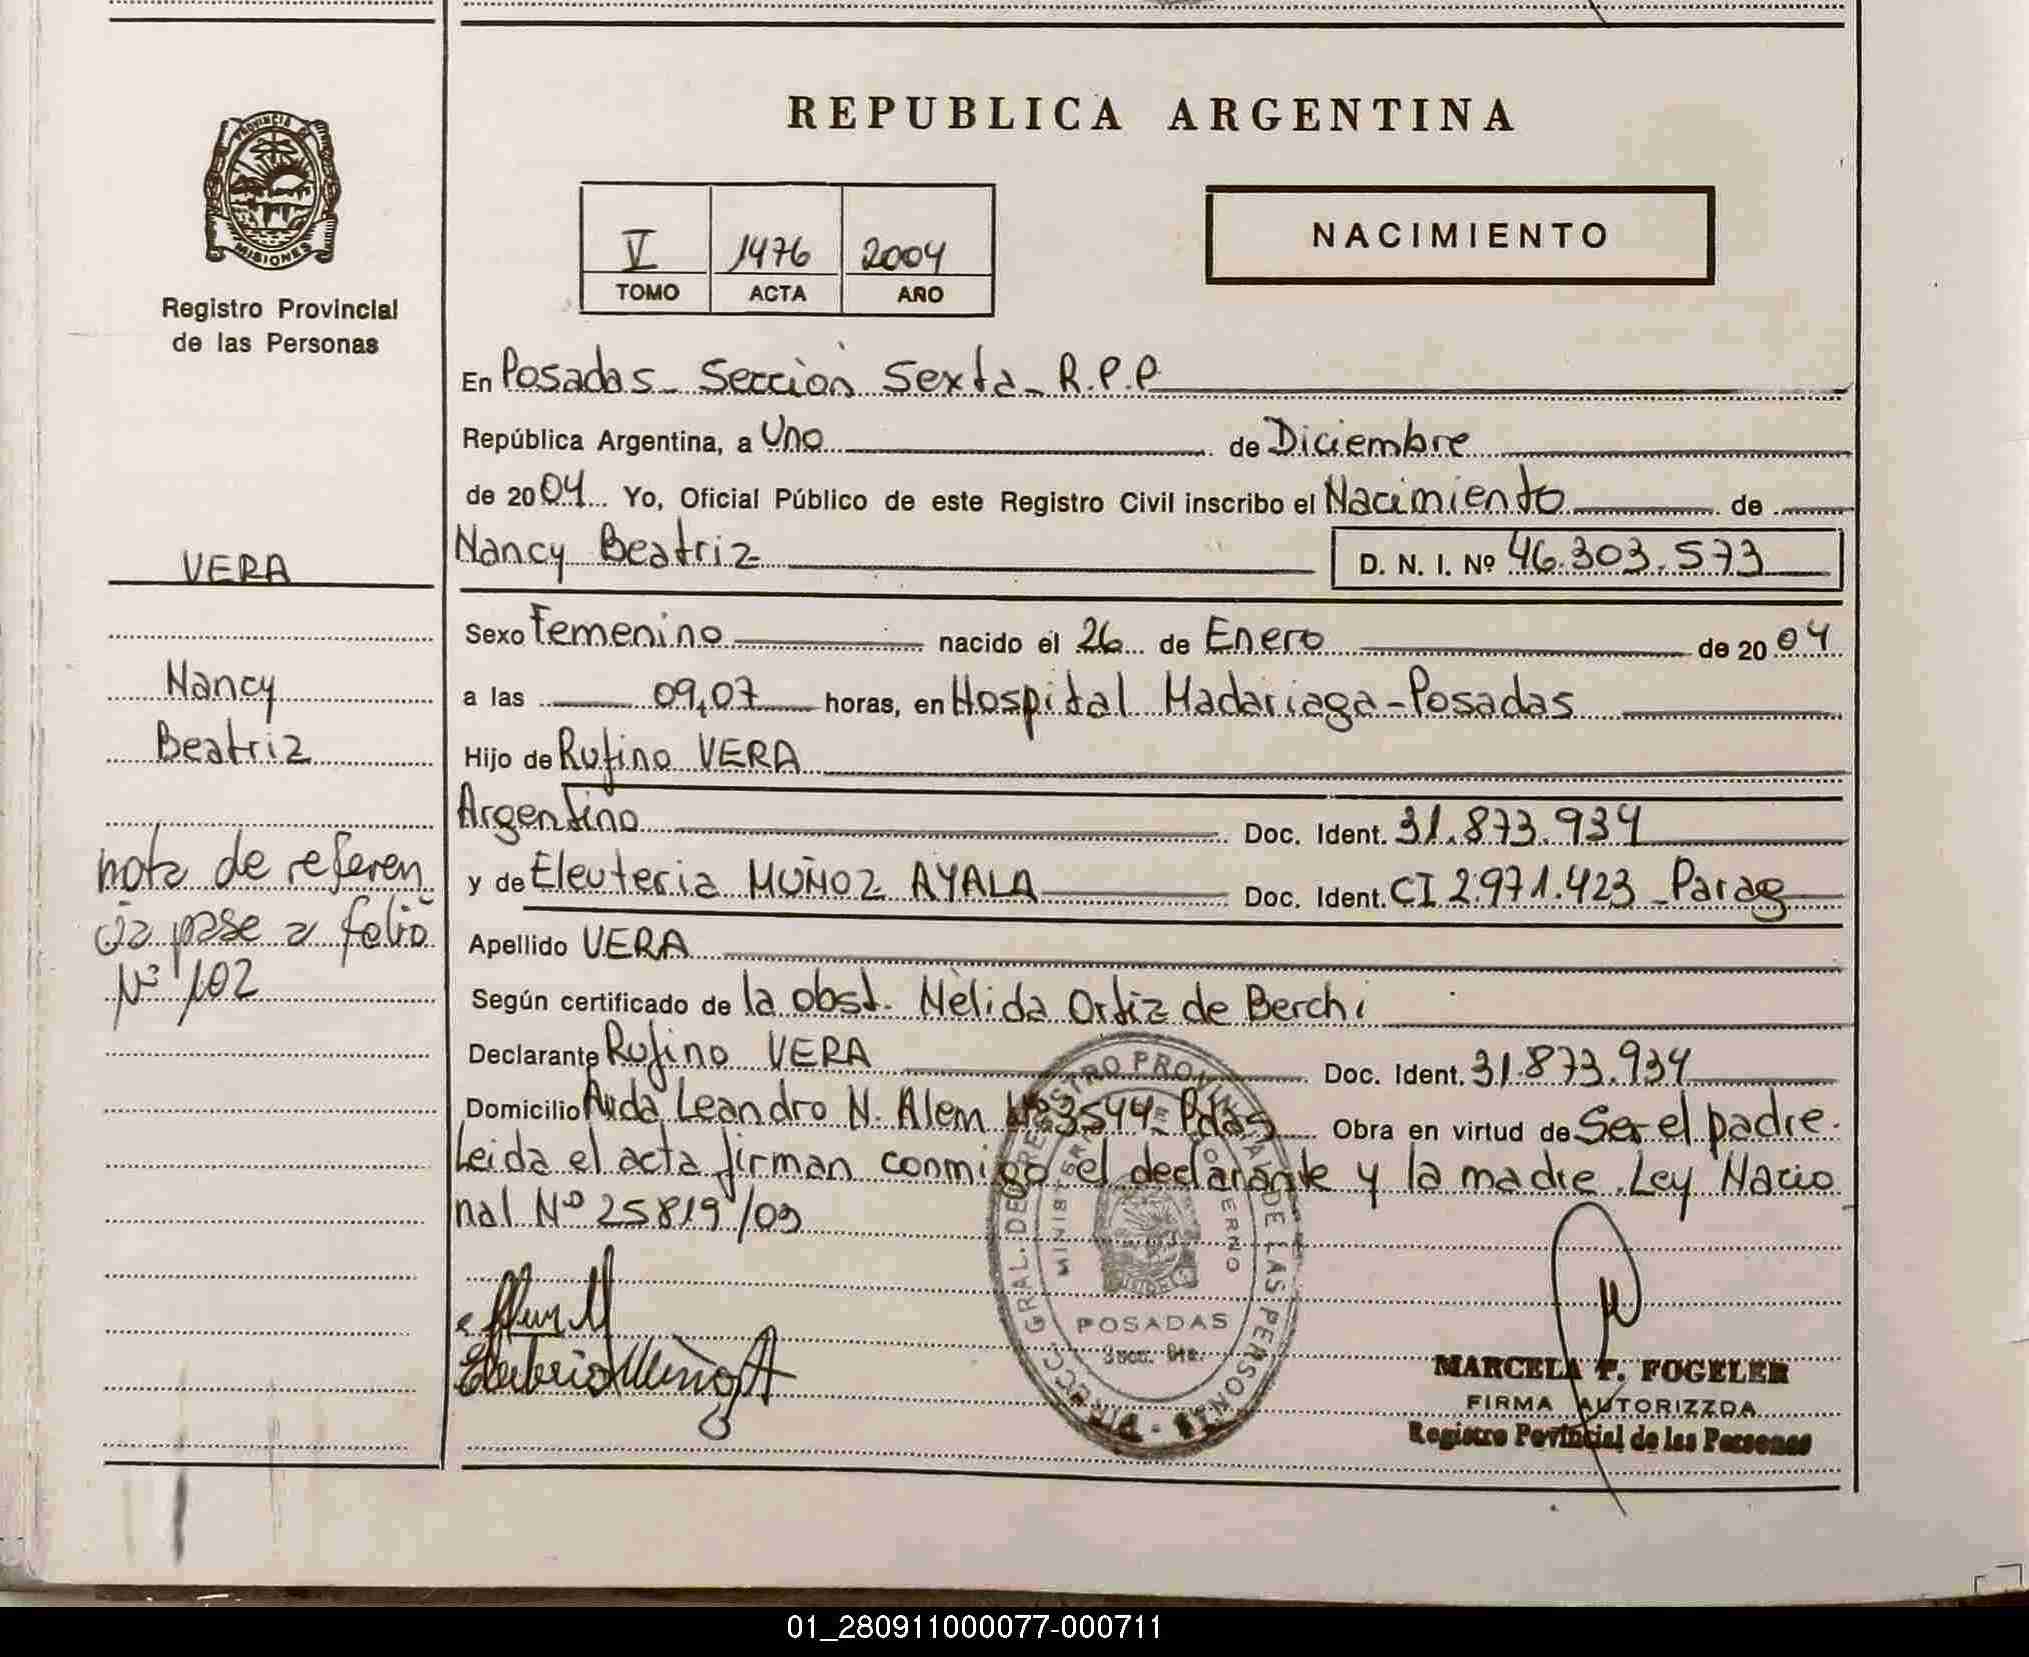 REPUBLICA ARGENTINA
PROVINCIA DE
MISIONES
Registro Provincial
de las Personas
V 1476 2004
TOMO ACTA AÑO
NACIMIENTO
En Posadas - Sección Sexta - R.P.P
República Argentina, a Uno de Diciembre
de 2004 Yo, Oficial Público de este Registro Civil inscribo el Nacimiento de
Nancy Beatriz D. N. I. Nº 46.303.573
Sexo Femenino nacido el 26 de Enero de 2004
a las 09,07 horas, en Hospital Madariaga - Posadas
Hijo de Rufino VERA
Argentino Doc. Ident. 31.873.934
y de Eleuteria MUÑOZ AYALA Doc. Ident. CI 2.971.423 - Parag
Apellido VERA
Según certificado de la obst. Nèlida Ortiz de Berchi
Declarante Rufino VERA Doc. Ident. 31.873.934
Domicilio Avda Leandro N. Alem Nº 3544 - Pdas Obra en virtud de Ser el padre.
Leida el acta firman conmigo el declarante y la madre. Ley Nacio
nal Nº 25819/03
VERA
Nancy
Beatriz
nota de referen
cia pase a folio
Nº 102
DIRECC. GRAL. DEL REGISTRO PROVINCIAL DE LAS PERSONAS
MINISTERIO DE GOBIERNO
POSADAS
MARCELA F. FOGELER
FIRMA AUTORIZZDA
Registro Povincial de las Personas
01_280911000077-000711